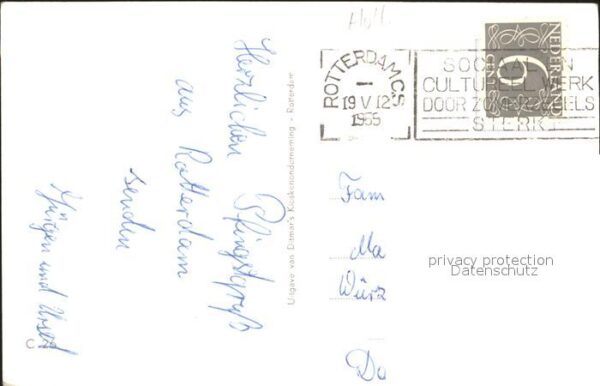 Herzlichen Pfingstgruß
aus Rotterdam
senden
Jürgen und
Uitgave van Ditmar's Kioskenonderneming - Rotterdam
ROTTERDAM C.S
19 V 12
1955
SOCIAAL EN
CULTUREEL WERK
DOOR ZOMERZEGELS
STERK
NEDERLAND
6
Fam
Ma
Würz
Da
privacy protection
Datenschutz